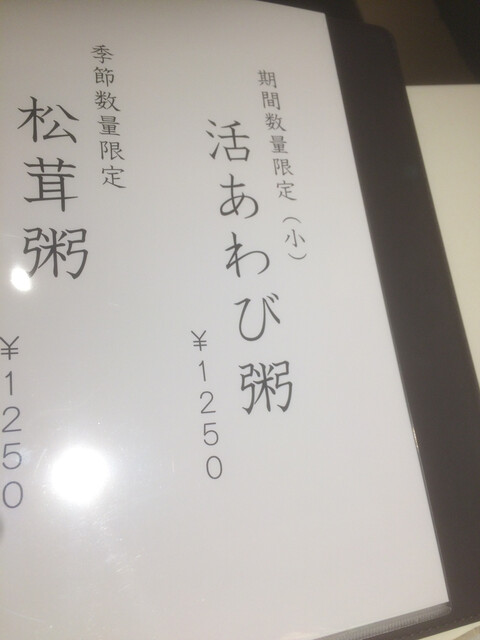 期間数量限定（小）
活あわび粥
￥1250
季節数量限定
松茸粥
￥1250